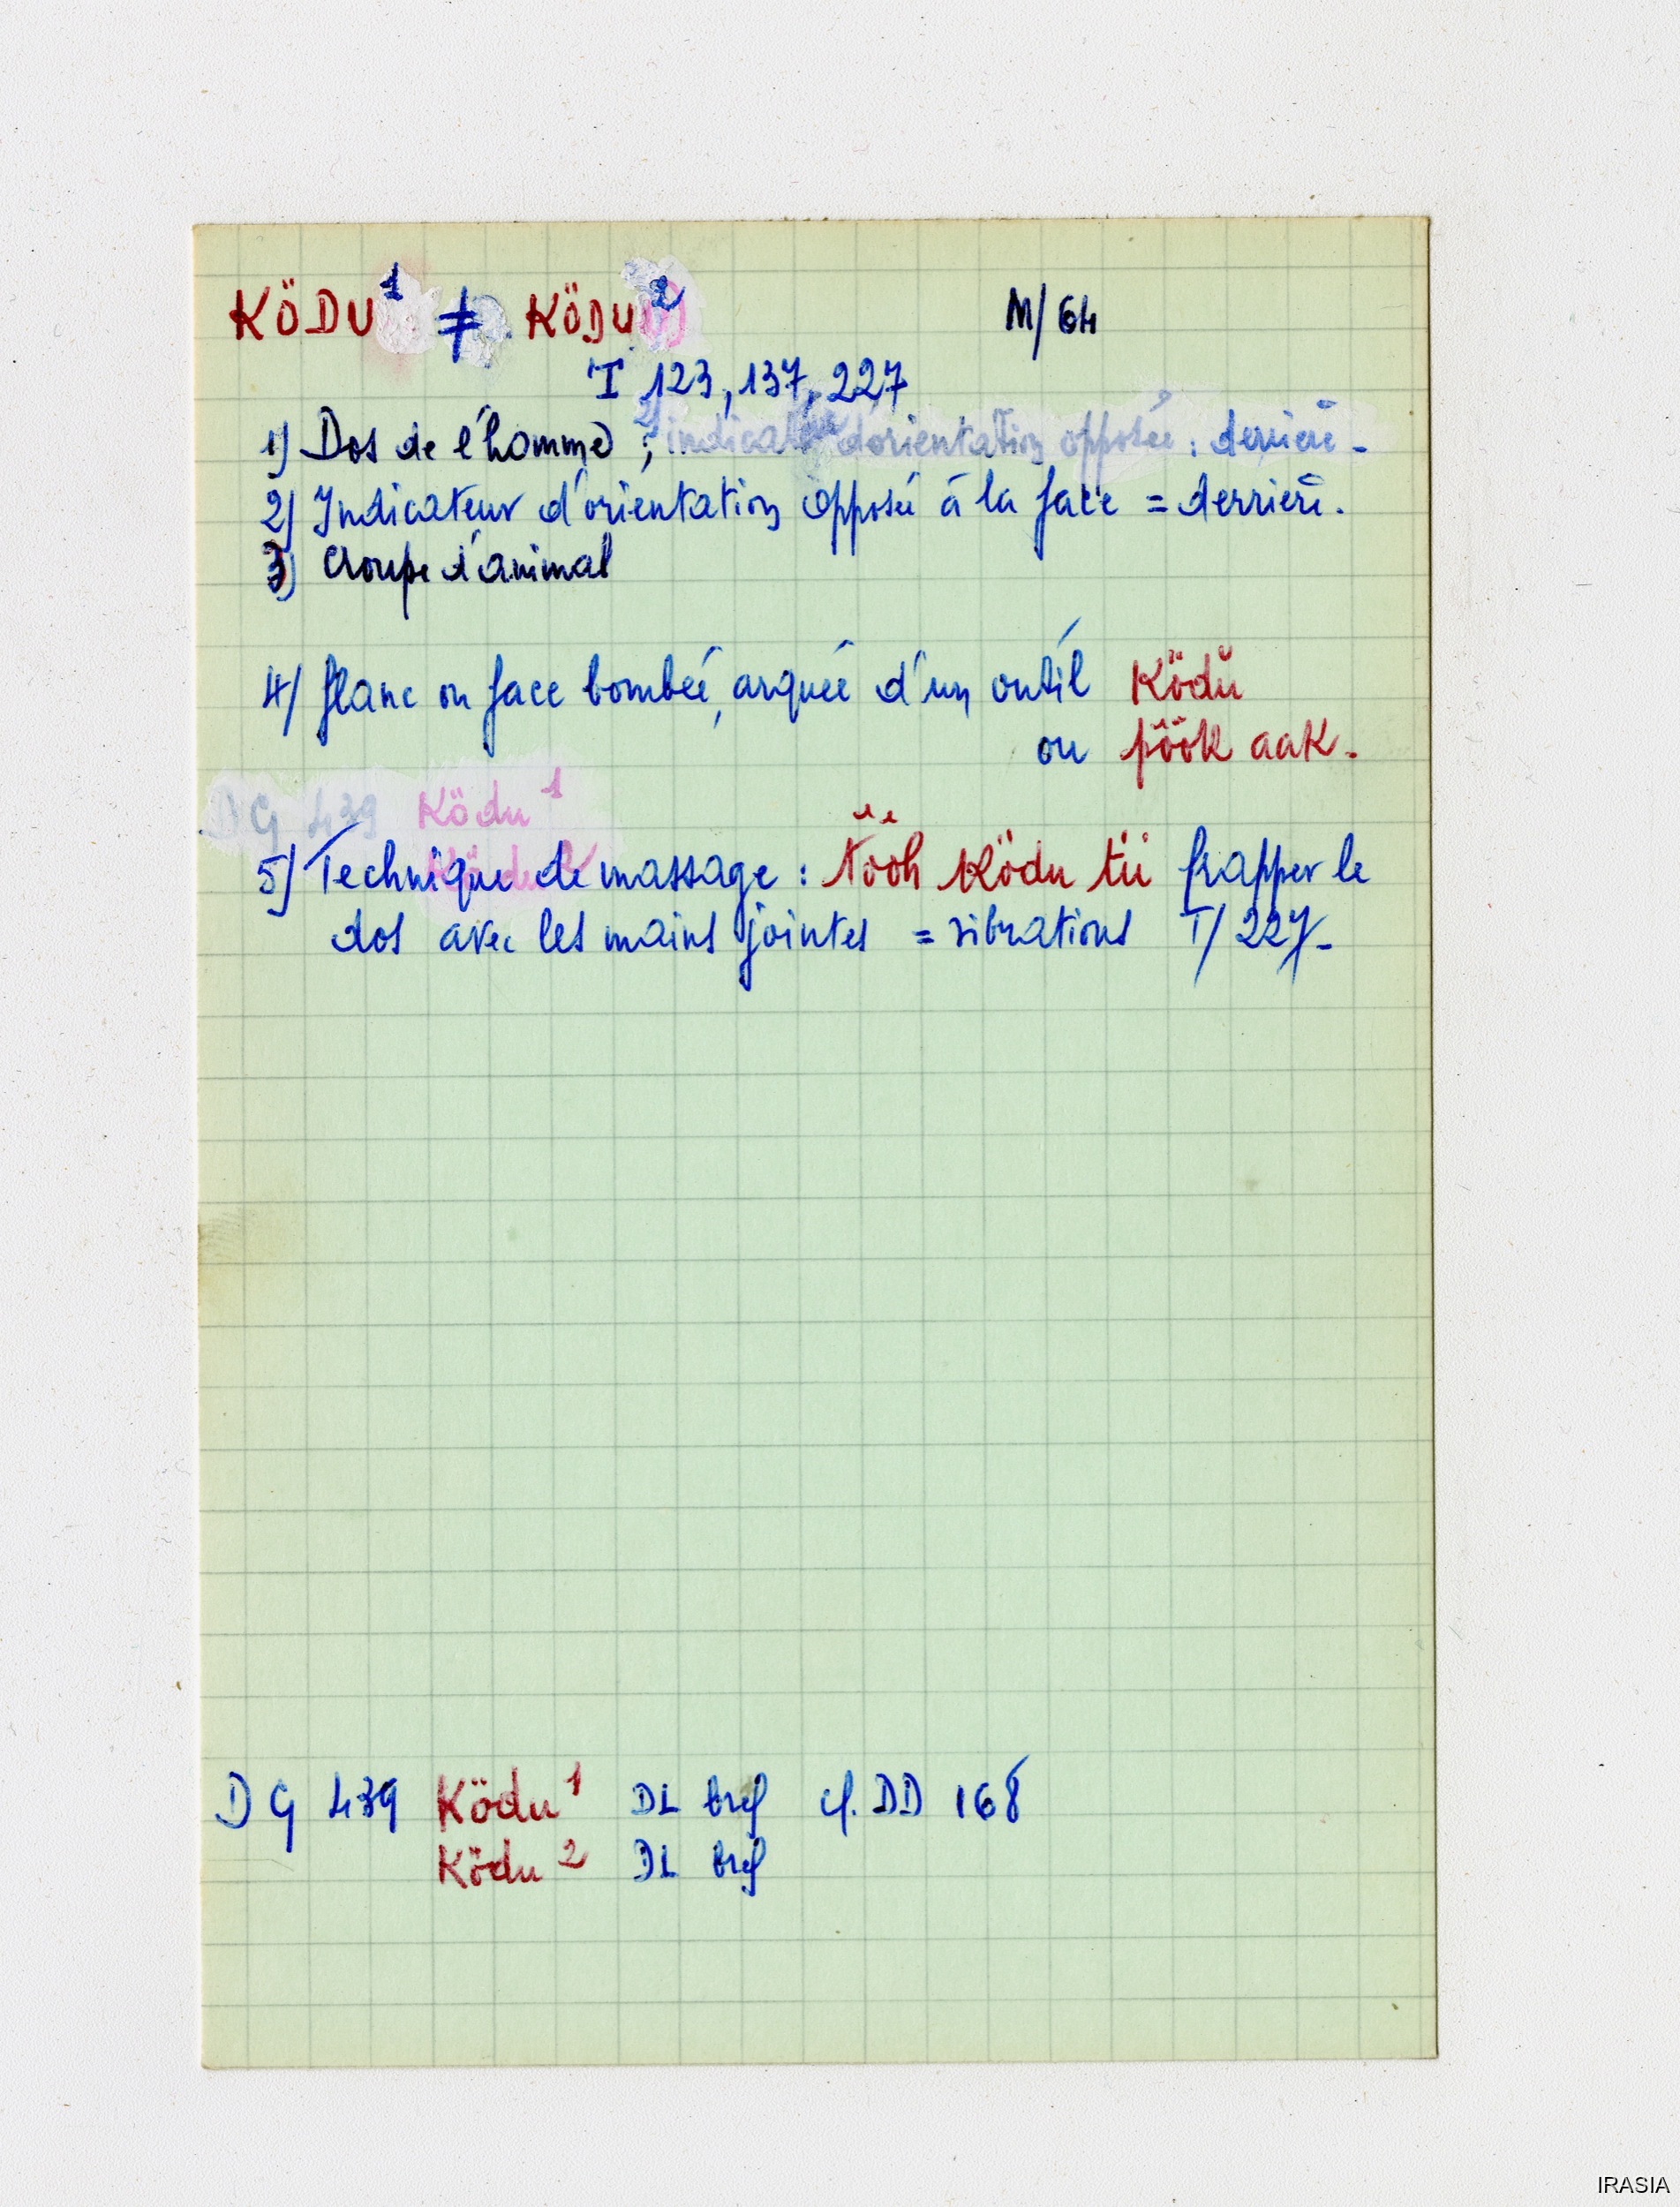 KÖDU¹ ≠ KÖDU² M/64
T 123, 137, 227
1) Dos de l'homme ; 2) indicateur d'orientation opposée : derrière -
2) Indicateur d'orientation opposée à la face = derrière.
3) Croupe d'animal
4) flanc ou face bombée, arquée d'un outil Ködŭ
ou pöök aak.
DG 439 Ködu¹
Ködu²
5) Technique de massage : Ködu tii frapper le
dos avec les mains jointes = vibrations T/ 227-
DG 439 Ködu¹ DL bref cf. DD 168
Ködu² DL bref
IRASIA